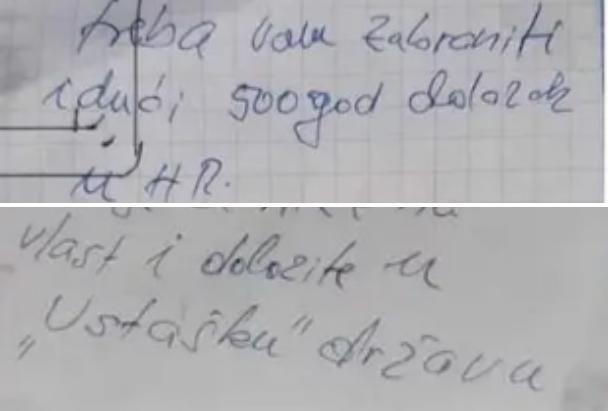 treba vam zabraniti
idući 500 god dolazak
u HR.
vlast i dolazite u
„Ustašku" državu